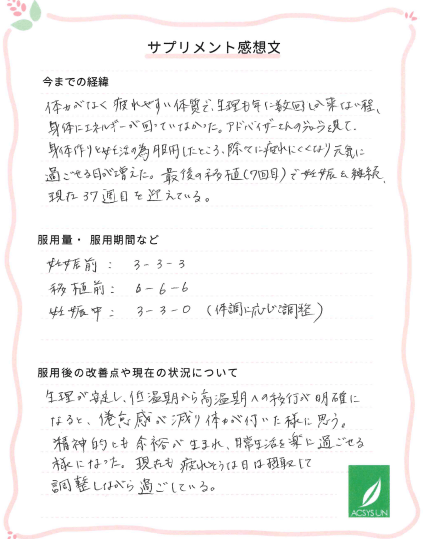 サプリメント感想文
今までの経緯
体力がなく疲れやすい体質で、生理も年に数回しか来ない程、
身体にエネルギーが回っていなかった。アドバイザーさんの
身体作りと妊活の為服用したところ、徐々に疲れにくくなり元気に
過ごせる日が増えた。最後の移植(7回目)で妊娠し継続、
現在37週目を迎えている。
服用量・服用期間など
妊娠前： 3-3-3
移植前： 6-6-6
妊娠中： 3-3-0 (体調に応じ調整)
服用後の改善点や現在の状況について
生理が安定し、低温期から高温期への移行が明確に
なると、倦怠感が減り体力が付いた様に思う。
精神的にも余裕が生まれ、日常生活を楽に過ごせる
様になった。現在も疲れそうな日は摂取して
調整しながら過ごしている。
ACSYSUN